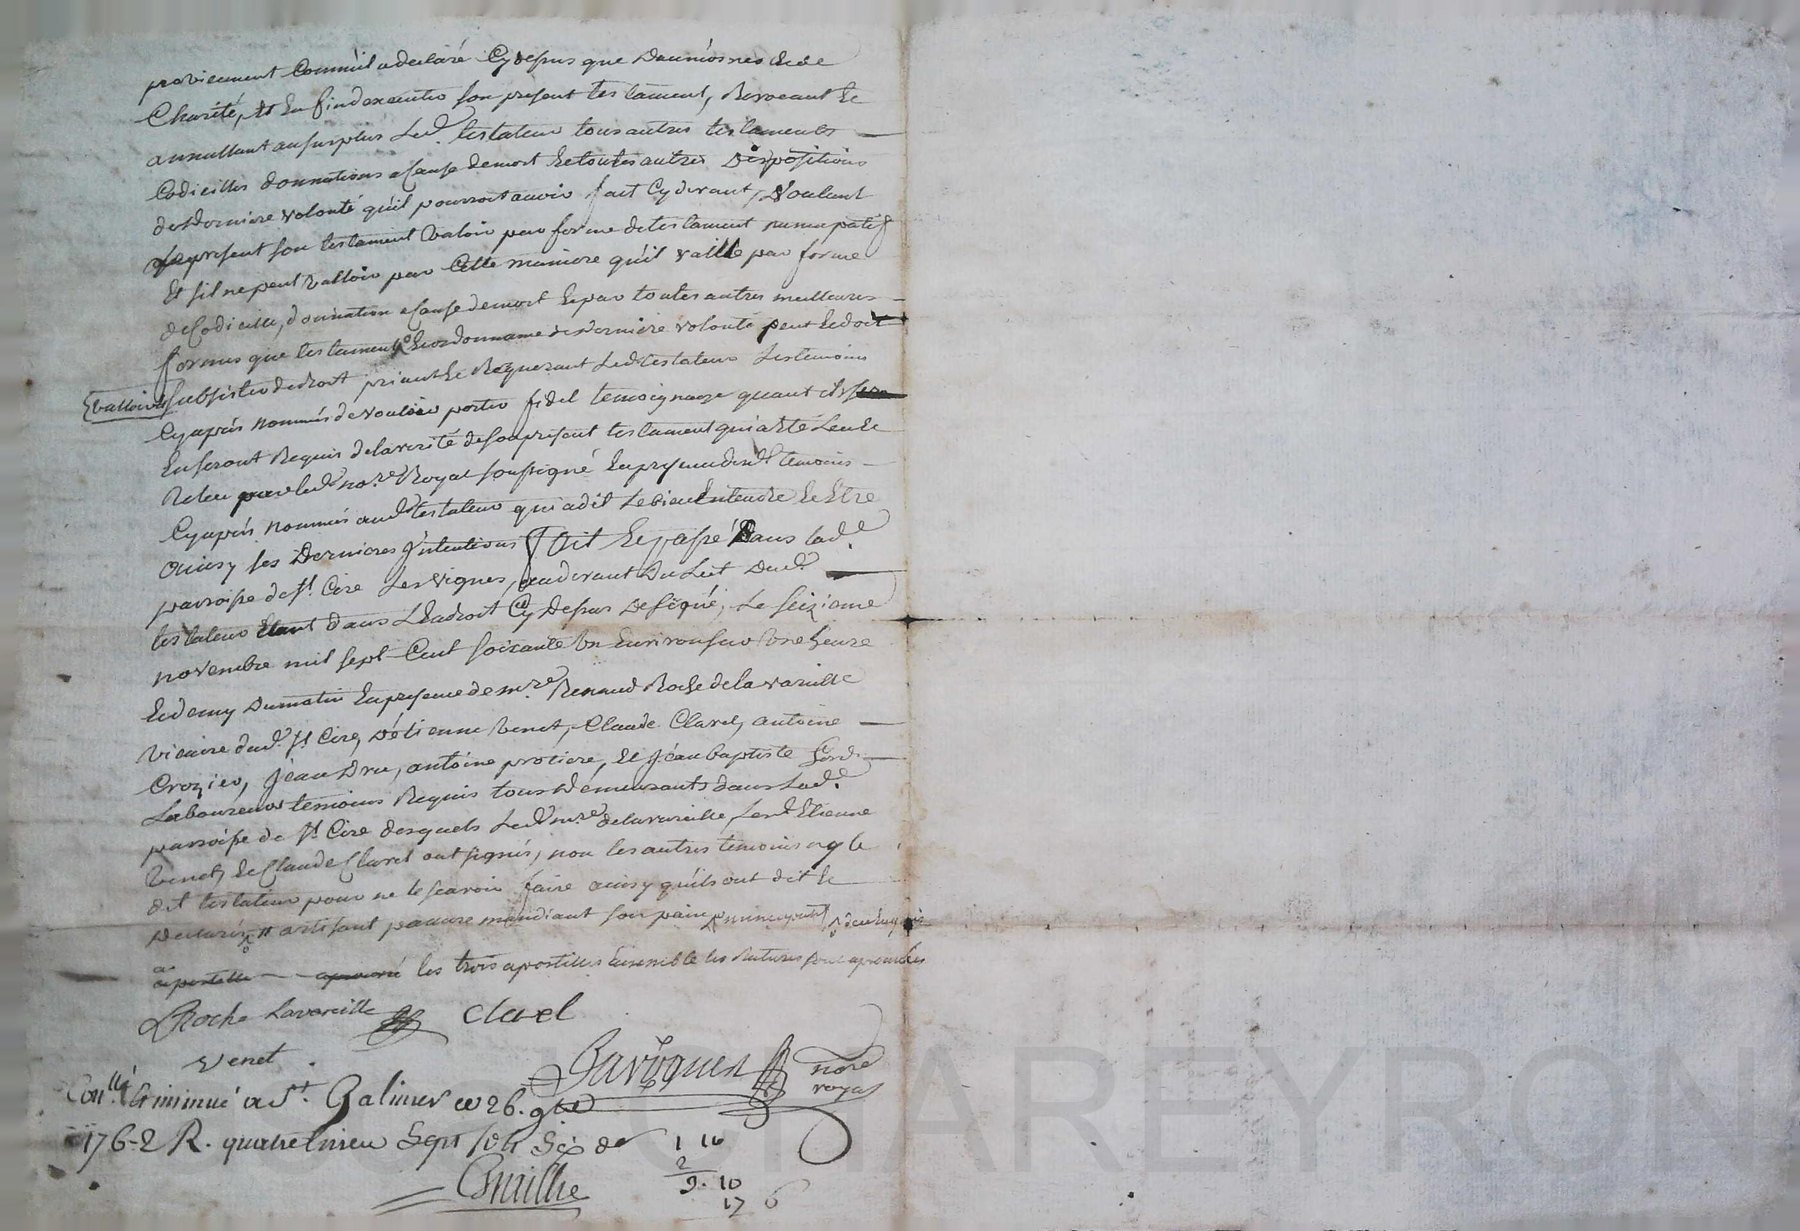 proviennent Comm'il a declaré Cy dessus que Daumosnes et de
Charité, Et En fin d'executer son present testament, Revocant Et
annullant au surplus Led.t testateur tous autres testaments
Codicilles donnations a Cause de mort Et toutes autres Dispositions
de Derniere volonté qu'il pourroit avoir fait Cy devant, Voulant
Le present son testament Valoir par forme de testament nuncupatif
Et s'il ne peut Valloir par Cette maniere qu'il vallie par forme
de Codicille, donnation a Cause de mort Et par toutes autres meilleures
formes que testament Et ordonnance de Derniere volonté peut Et doit
Valloir Et subsister de droit priant Et Requerant Led. testateur Les temoins
Cyaprés nommés de vouloir porter fidel temoignage quant ils
En seront Requis de la verité de son present testament qui a Eté Leu Et
Releu par Led. no.re Royal soussigné En presence desd. temoins
Cyaprés nommés aud. testateur qui a dit Le bien Entendre Et Etre
ainsy ses Dernieres Intentions Fait Et passé Dans lad.e
parroisse de s.t Cire Les vignes, au devant Du Lit Dud.
testateur Etant dans L'Endroit Cy Dessus Designé, Le seizieme
novembre mil sept Cent soixante Un Environ sur Une heure
Et demy Du matin En presence de m.re Renaud Roche de la vareille
Vicaire dud. s.t Cire, D'étienne Venet, Claude Clavel, antoine
Crozier, Jean Dru, antoine protiere, Et Jean baptiste
Laboureurs temoins Requis tous Demeurants dans Lad.e
parroisse de s.t Cire desquels Led. m.re de la vareille Led. Etienne
Venet, Et Claude Clavel ont signés, non les autres temoins ny le
dit testateur pour ne le scavoir faire ainsy qu'ils ont dit Et
Declarés artisant pauvre mandiant son pain nuncupatif
apostille les trois apostilles Ensemble les Ratures sont aprouvées
Roche Lavareille Clavel
Venet
Barioques nore
royal
Con.llé & insinué a S.t Galmier ce 26. 9bre
1762 R. quatre livres sept sols six d.
1 16
2
9. 10
17 6